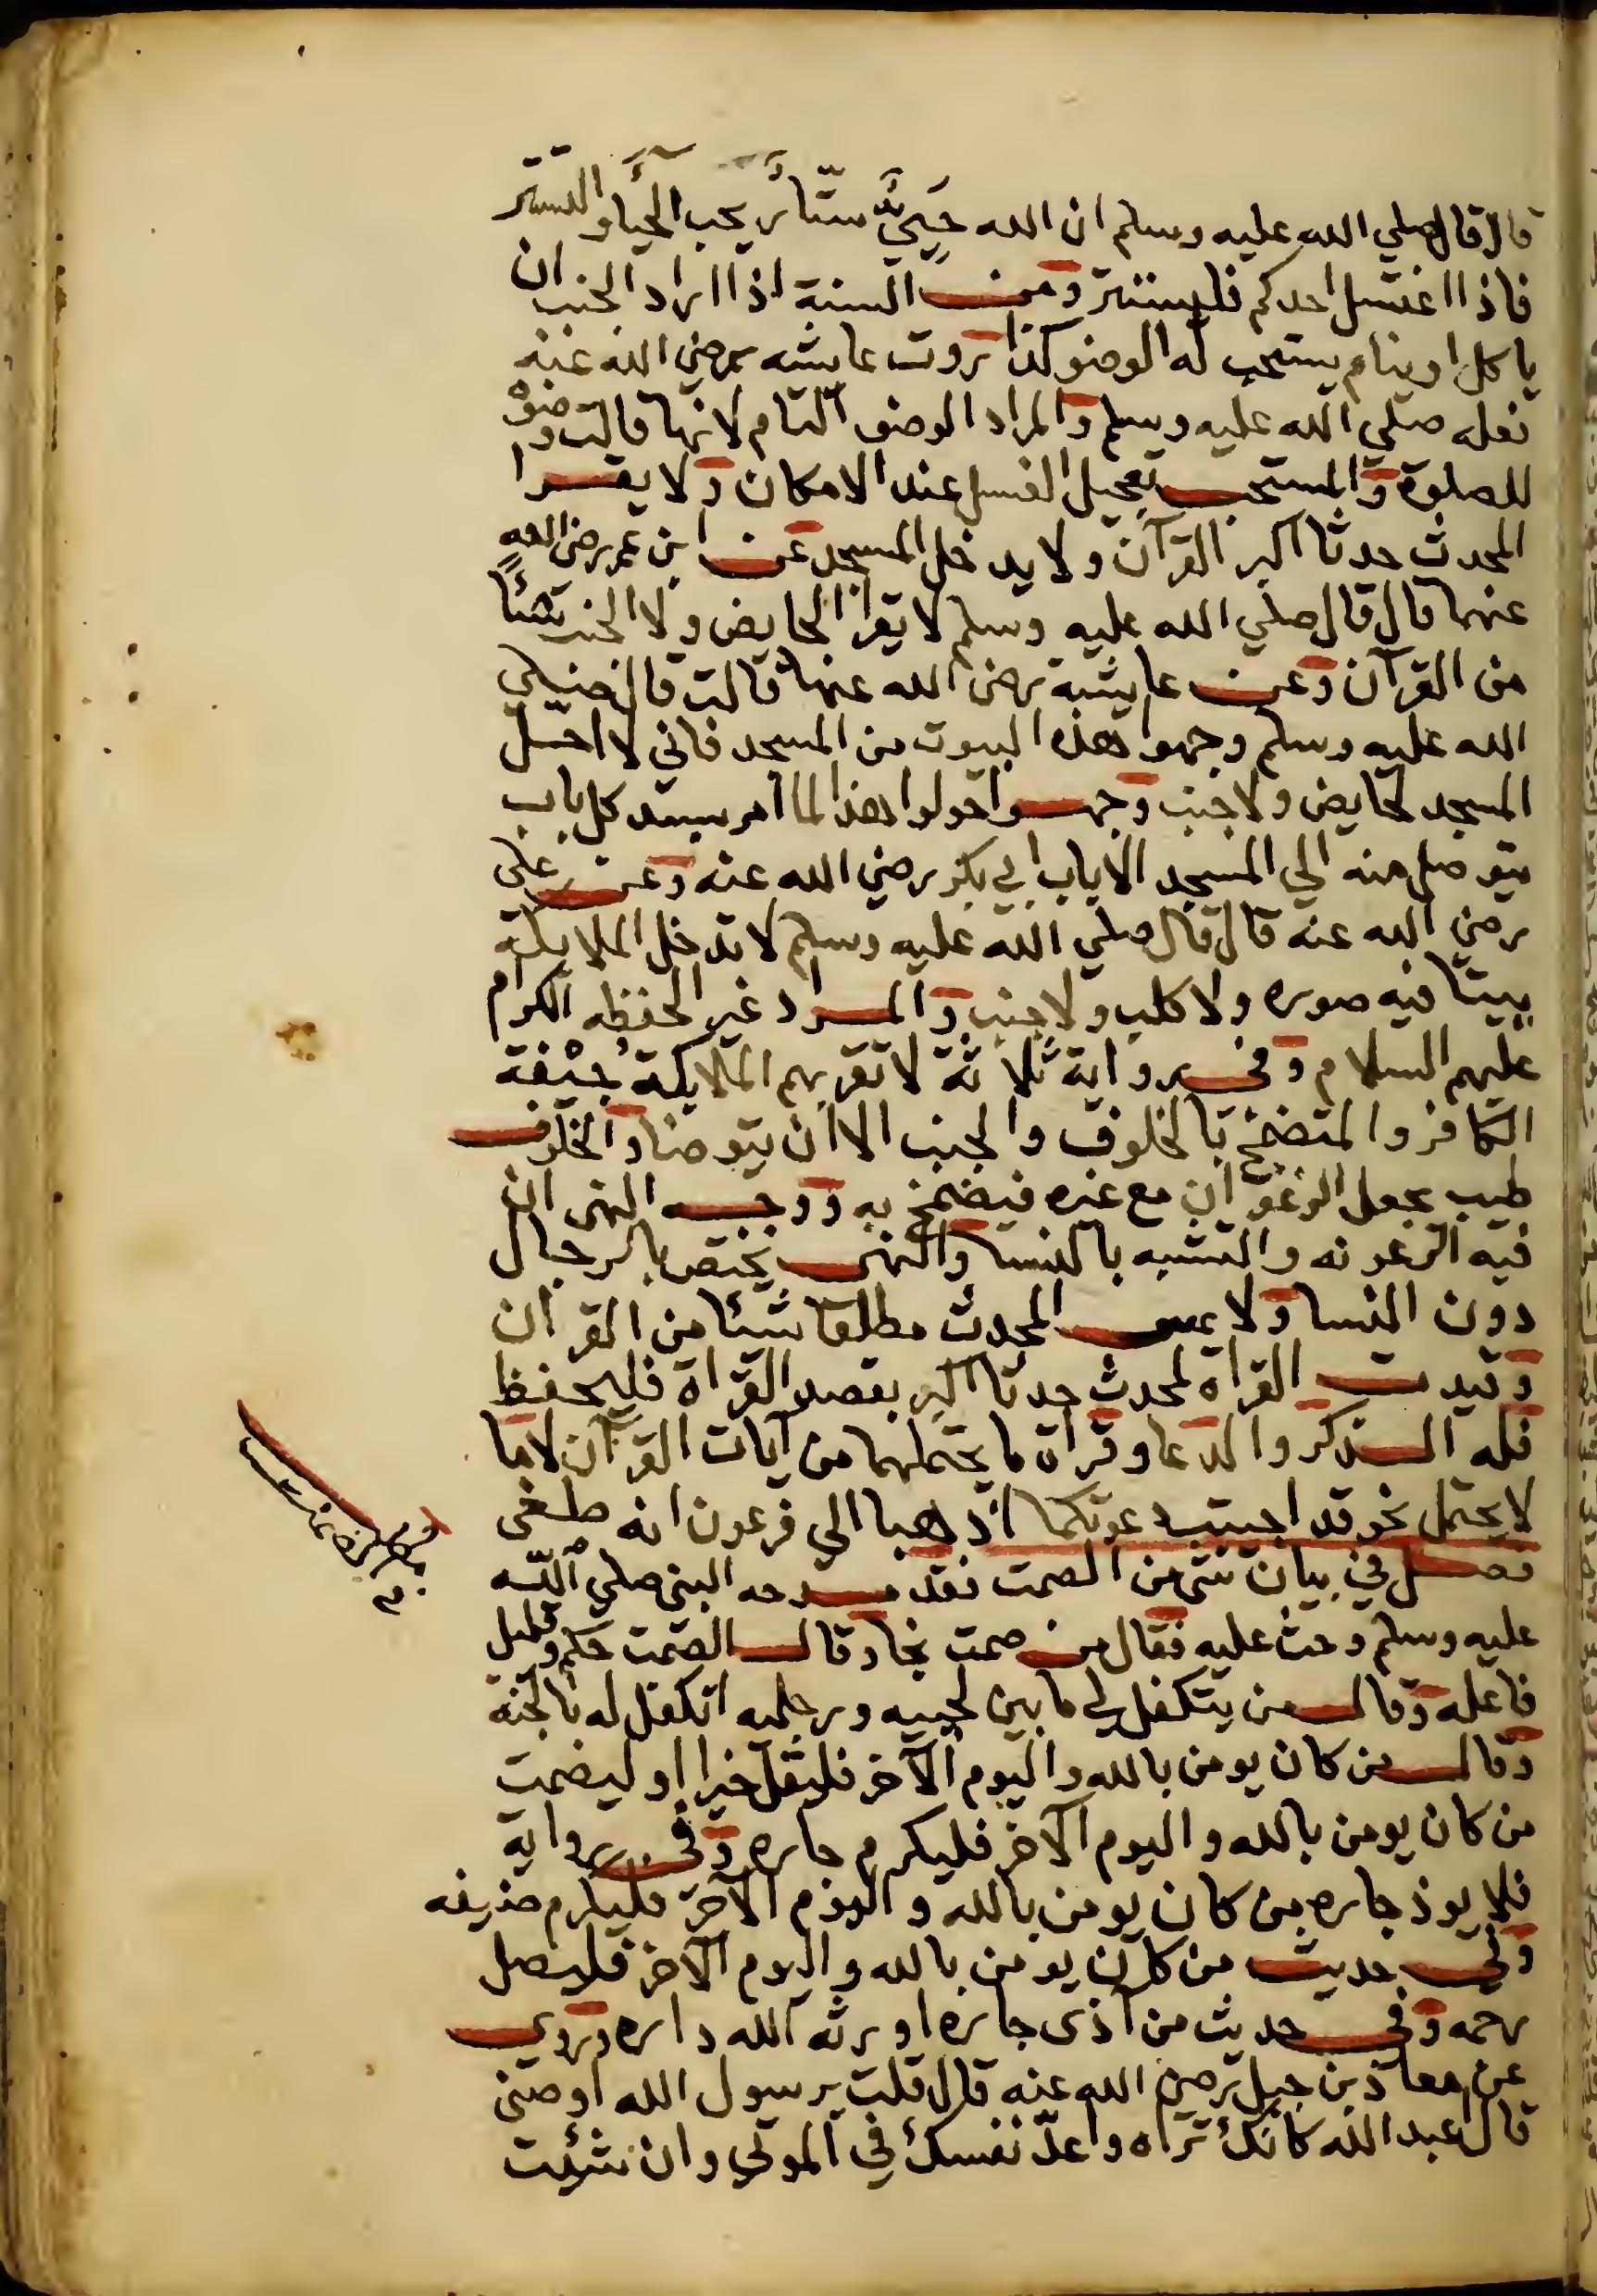 قال قال صلي الله عليه وسلم ان الله حَيِيٌّ ستّار يحب الحيا والتستر
فاذا اغتسل احدكم فليستتر ومن السنة اذا اراد الجنب ان
ياكل او ينام يستحب له الوضو كذا روت عايشه رضي الله عنه
فعله صلي الله عليه وسلم والمراد الوضو التام لانها قالت وضوْ
للصلوة والمستحب تعجيل الغسل عند الامكان ولا يقرا
المحدث حدثا اكبر القرآن ولا يدخل المسجد عن ابن عمر رضي الله
عنهما قال قال صلي الله عليه وسلم لا تقرا الحايض ولا الجنب شئاً
من القرآن وعن عايشة رضي الله عنها قالت قال صلي
الله عليه وسلم وجهوا هذه البيوت من المسجد فاني لا احل
المسجد لحايض ولا جنب وجهوا حولوا هذا لما امر بسد كل باب
يتوصل منه الي المسجد الا باب ابي بكر رضي الله عنه وعن علي
رضي الله عنه قال قال صلي الله عليه وسلم لا تدخل الملايكة
بيتا فيه صوره ولا كلب ولا جنب والمراد غير الحفظه الكرام
عليهم السلام وفي رواية ثلاثة لا تقربهم الملايكة جيْفة
الكافر والمتضمخ بالخلوق والجنب الا ان يتوضا والخلوق
طيب يجعل الزعفران مع غيره فيضمخ به ووجه النهي ان
فيه الرعونه والتشبه بالنسا والنهي يختص بالرجال
دون النسا ولا يمس المحدث مطلقا شئا من القران
وقيدت القراه لمحدث حدثا اكبر بقصد القراة فليحفظ
فله الذكر والدعا وقراة ما يحتملهما من آيات القرآن لا ما
لا يحتمل نحو قد اجيبت دعوتكما اذهبا الي فرعون انه طغى
فصل في بيان شئ من الصمت فقد مدحه النبي صلي الله
عليه وسلم وحث عليه فقال من صمت نجا وقال الصمت حكم وقليل
فاعله وقال من يتكفل لي ما بين لحييه ورجليه اتكفل له بالجنة
وقال من كان يومن بالله واليوم الآخر فليقل خيرا او ليصمت
من كان يومن بالله واليوم الآخر فليكرم جاره وفي رواية
فلا يوذ جاره من كان يومن بالله واليوم الآخر فليكرم ضيفه
وفي حديث من كان يومن بالله واليوم الآخر فليصل
رحمه وفي حديث من آذى جاره اورثه الله داره وروي
عن معاذ بن جبل رضي الله عنه قال قلت يرسول الله اوصني
قال اعبد الله كانك تراه واعدّ نفسك في الموتي وان شئت